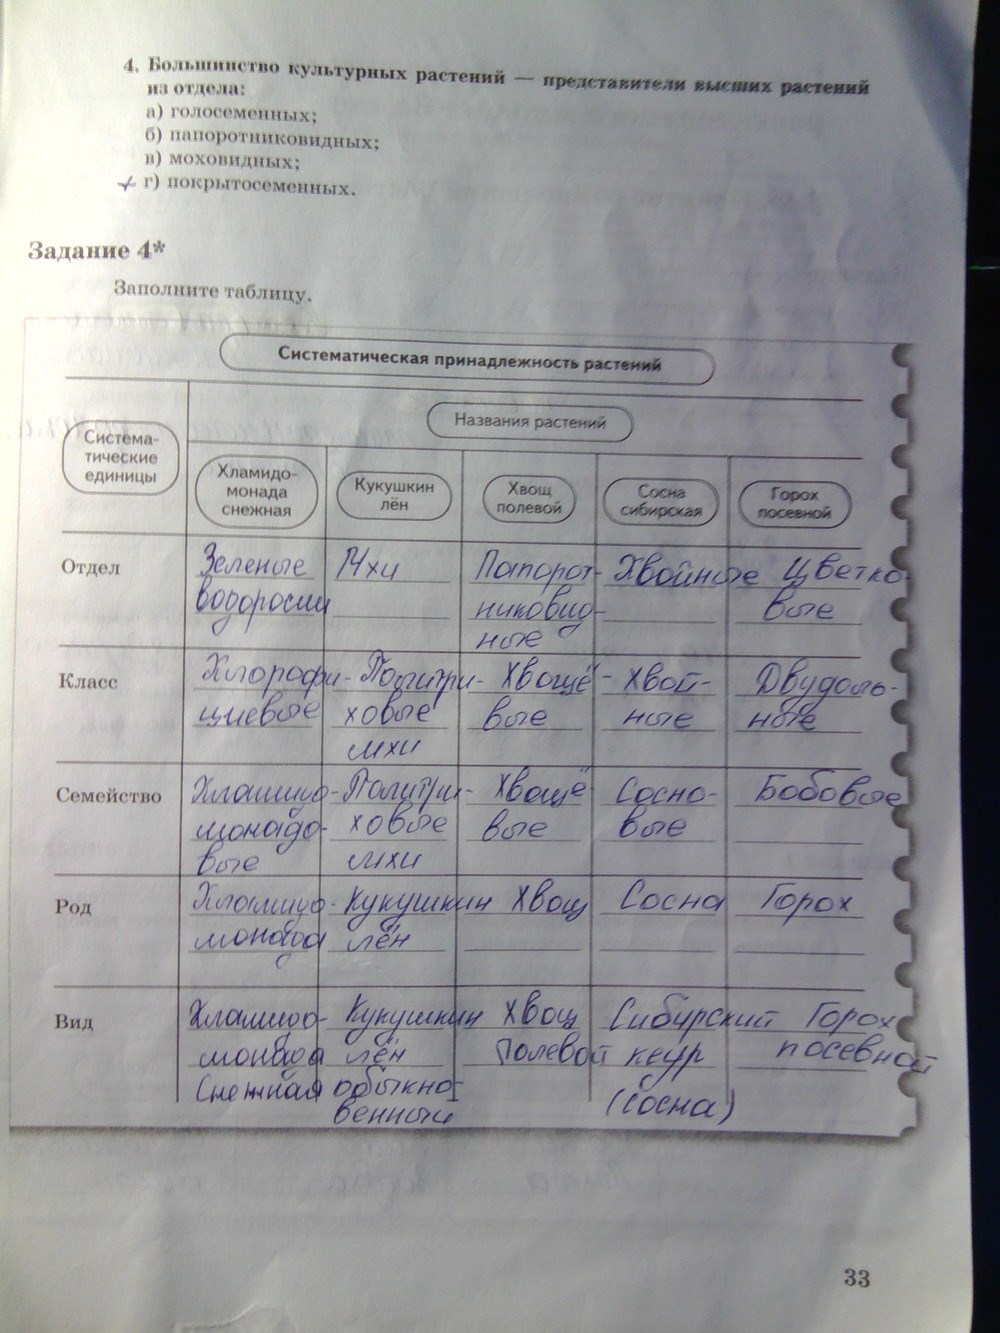 4. Большинство культурных растений — представители высших растений
из отдела:
а) голосеменных;
б) папоротниковидных;
в) моховидных;
г) покрытосеменных.
Задание 4*
Заполните таблицу.
Систематическая принадлежность растений
Названия растений
Система-
тические
единицы
Хламидо-
монада
снежная
Кукушкин
лён
Хвощ
полевой
Сосна
сибирская
Горох
посевной
Отдел
Зеленые
водоросли
Мхи
Папорот-
никовид-
ные
Хвойные
Цветко-
вые
Класс
Хлорофи-
циевые
Политри-
ховые
мхи
Хвощё-
вые
Хвой-
ные
Двудоль-
ные
Семейство
Хламидо-
монадо-
вые
Политри-
ховые
мхи
Хвощё
вые
Сосно-
вые
Бобовые
Род
Хламидо-
монада
Кукушкин
лён
Хвощ
Сосна
Горох
Вид
Хламидо-
монада
Снежная
Кукушкин
лён
обыкно-
венный
Хвощ
полевой
Сибирский
кедр
(сосна)
Горох
посевной
33